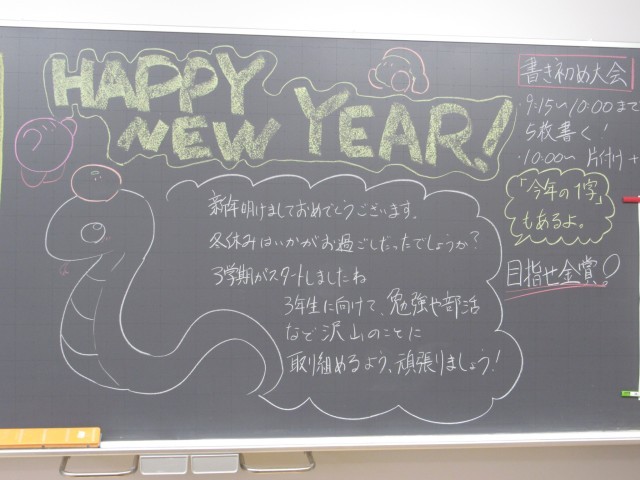 HAPPY
NEW YEAR!
新年明けましておめでとうございます。
冬休みはいかがお過ごしだったでしょうか?
3学期がスタートしましたね
3年生に向けて、勉強や部活
など沢山のことに
取り組めるよう、頑張りましょう!
書き初め大会
・9:15〜10:00まで
5枚書く!
・10:00〜 片付け+
「今年の1字」
もあるよ。
目指せ金賞!